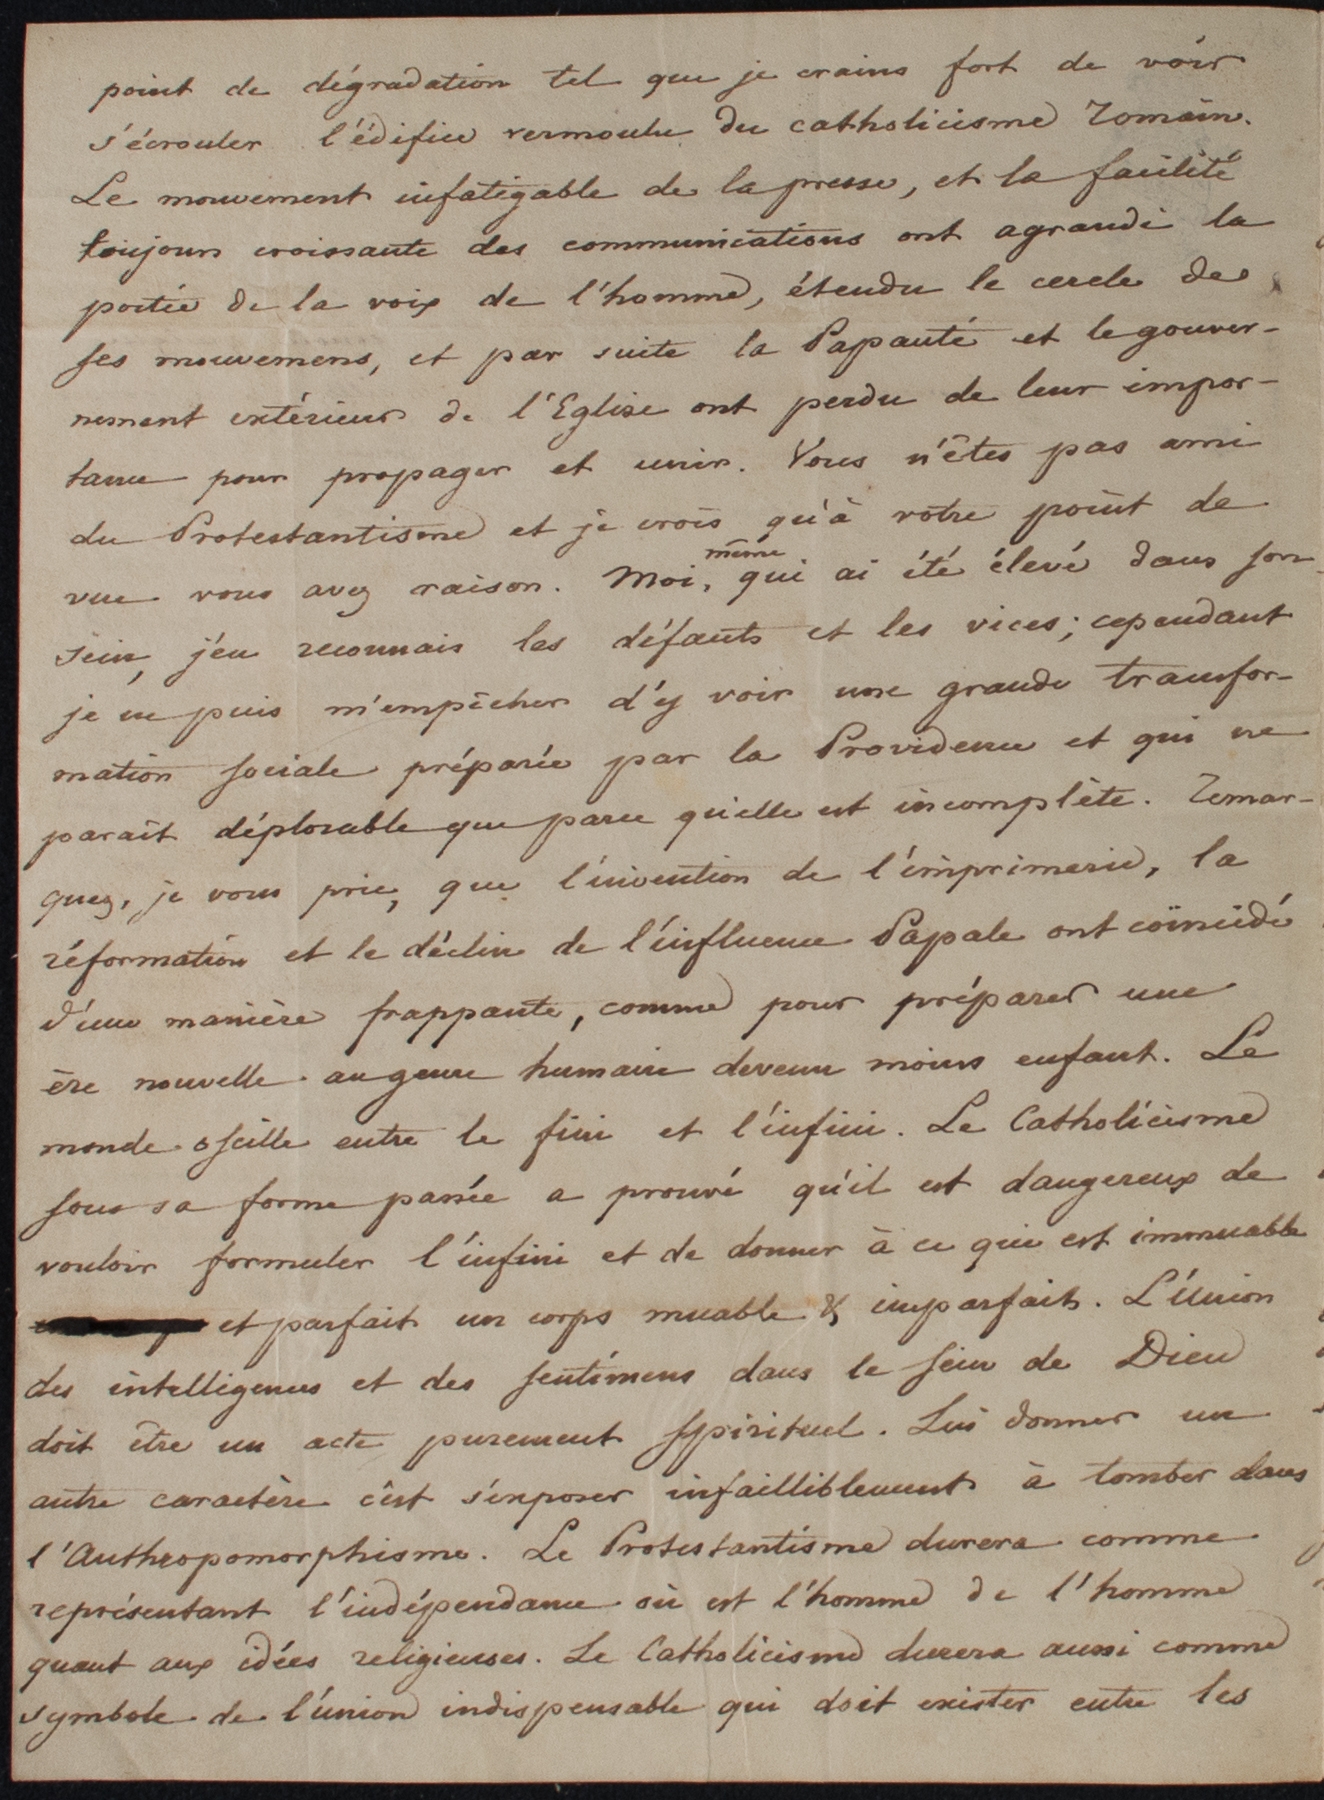 point de dégradation tel que je crains fort de voir
s'écrouler l'édifice vermoulu du catholicisme romain.
Le mouvement infatigable de la presse, et la facilité
toujours croissante des communications ont agrandi la
portée de la voix de l'homme, étendu le cercle de
ses mouvemens, et par suite la Papauté et le gouver-
nement extérieur de l'Eglise ont perdu de leur impor-
tance pour propager et unir. Vous n'êtes pas ami
du Protestantisme et je crois qu'à votre point de
vue vous avez raison. Moi, même qui ai été élevé dans son
sein, j'en reconnais les défauts et les vices; cependant
je ne puis m'empêcher d'y voir une grande transfor-
mation sociale préparée par la Providence et qui ne
parait déplorable que parce qu'elle est incomplète. Remar-
quez, je vous prie, que l'invention de l'imprimerie, la
réformation et le déclin de l'influence Papale ont coïncidé
d'une manière frappante, comme pour préparer une
ère nouvelle au genre humain devenu moins enfant. Le
monde oscille entre le fini et l'infini. Le Catholicisme
sous sa forme passée a prouvé qu'il est dangereux de
vouloir formuler l'infini et de donner à ce qui est immuable
et parfait un corps muable & imparfait. L'Union
des intelligences et des sentimens dans le sein de Dieu
doit être un acte purement spirituel. Lui donner un
autre caractère c'est s'exposer infailliblement à tomber dans
l'Anthropomorphisme. Le Protestantisme durera comme
représentant l'indépendance où est l'homme de l'homme
quant aux idées religieuses. Le Catholicisme durera aussi comme
symbole de l'union indispensable qui doit exister entre les